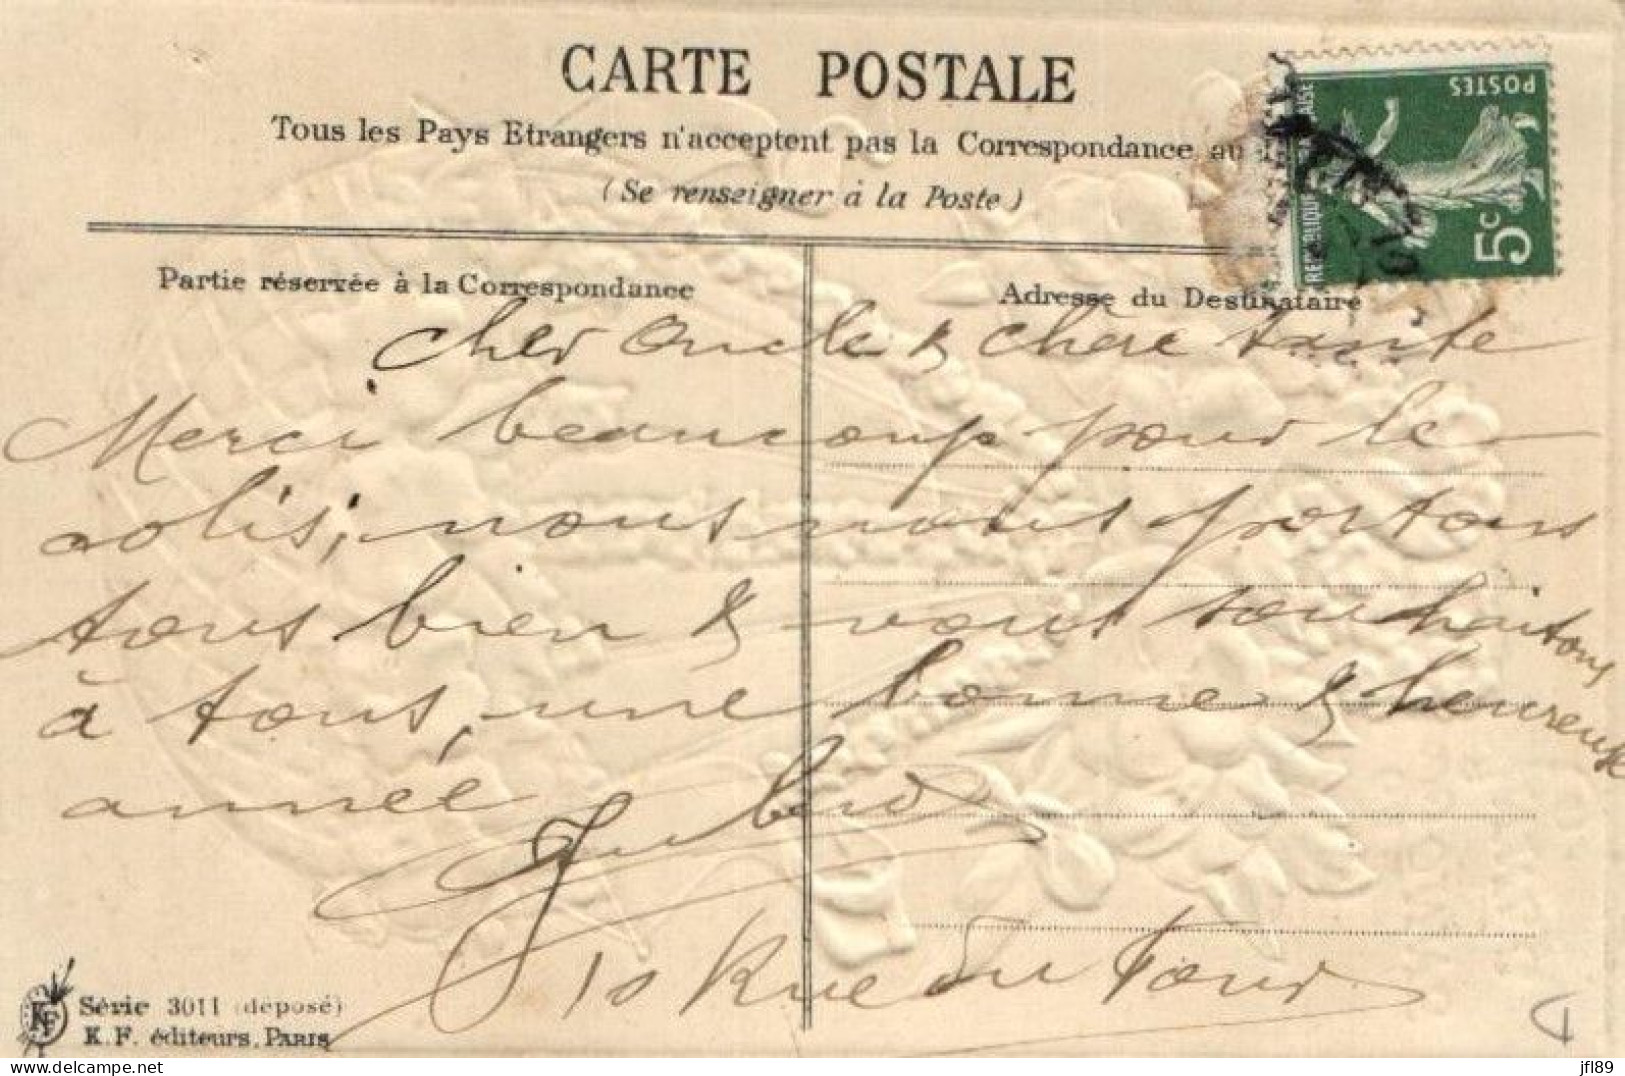 CARTE POSTALE
Tous les Pays Etrangers n'acceptent pas la Correspondance au
(Se renseigner à la Poste)
POSTES
5c
Partie réservée à la Correspondance
Adresse du Destinataire
cher oncle & chère tante
Merci beaucoup pour le
colis, nous nous portons
tous bien & vous souhaitons
à tous, une bonne & heureuse
année
10 Rue du Four
Série 3011 (déposé)
K. F. éditeurs, PARIS
KF
delcampe.net
jfl89